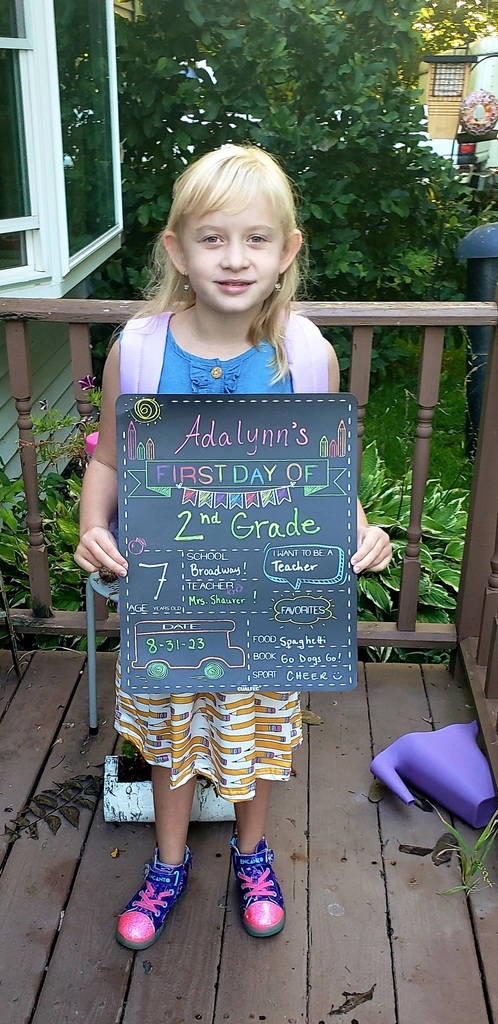 Adalynn's
FIRST DAY OF
2nd Grade
7
AGE YEARS OLD
SCHOOL
Broadway!
TEACHER
Mrs. Shaurer!
I WANT TO BE A
Teacher
FAVORITES
DATE
8-31-23
FOOD Spaghetti
BOOK Go Dogs Go!
SPORT CHEER
CUALFEC
ENCANTO
ENCANTO